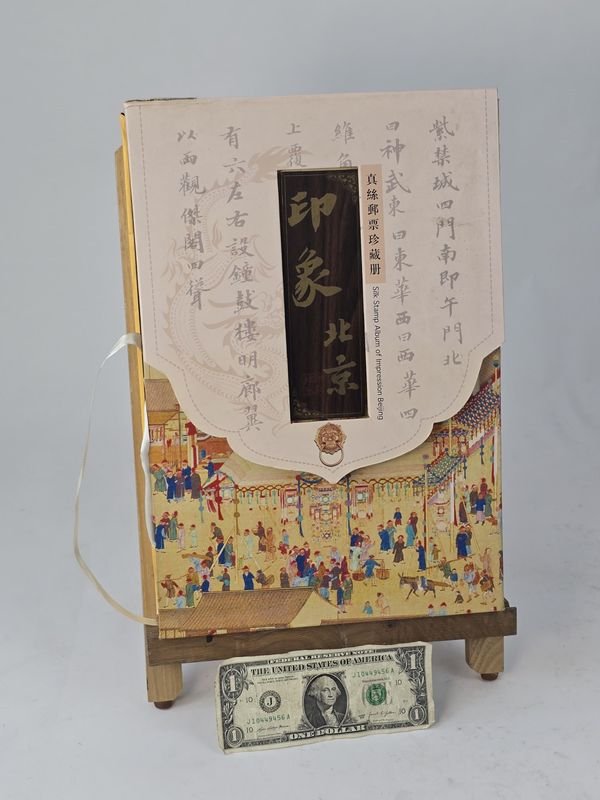 紫禁城四門南即午門北
曰神武東曰東華西曰西華四
維角
上覆
有六左右設鐘鼓樓明廊翼
以兩觀傑閣四聳
真絲郵票珍藏册
Silk Stamp Album of Impression Beijing
印象北京
FEDERAL RESERVE NOTE
THE UNITED STATES OF AMERICA
1
1
J 10449456 A
10
10
J
J 10449456 A
10
10
1
ONE DOLLAR
1